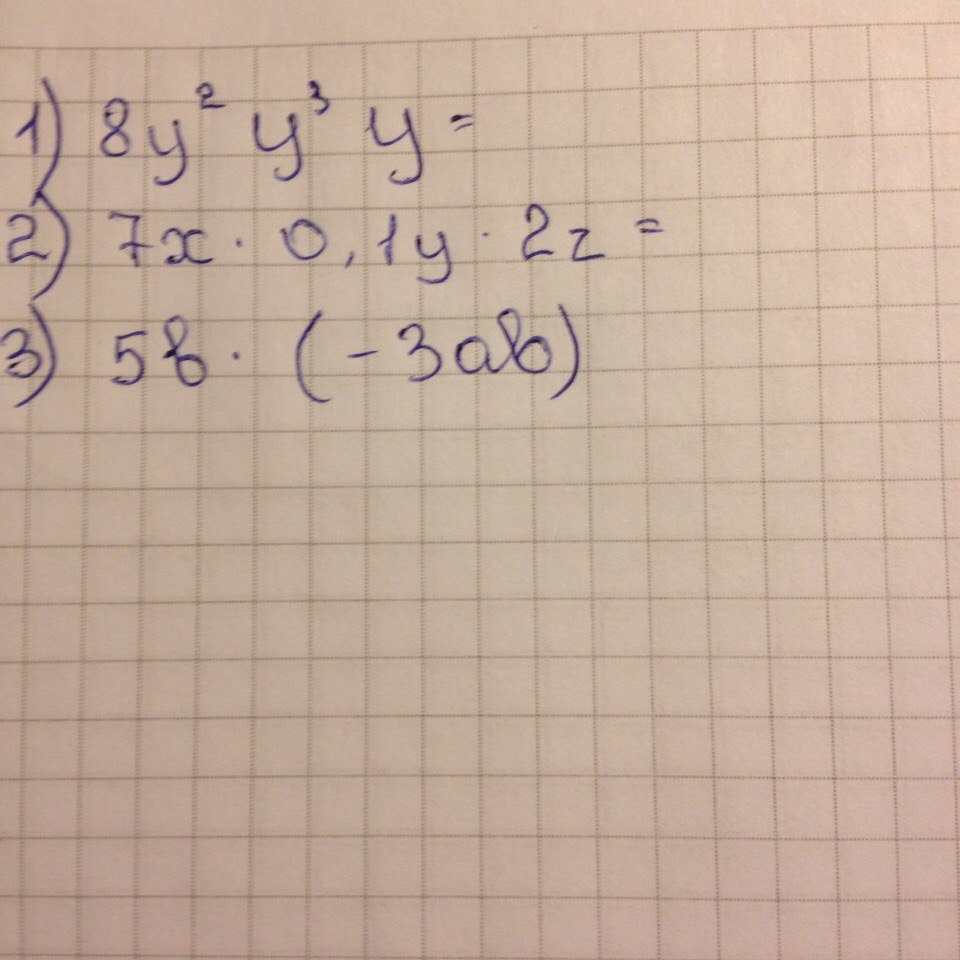 1) 8y² y³ y =
2) 7x · 0,1y · 2z =
3) 5b · (-3ab)